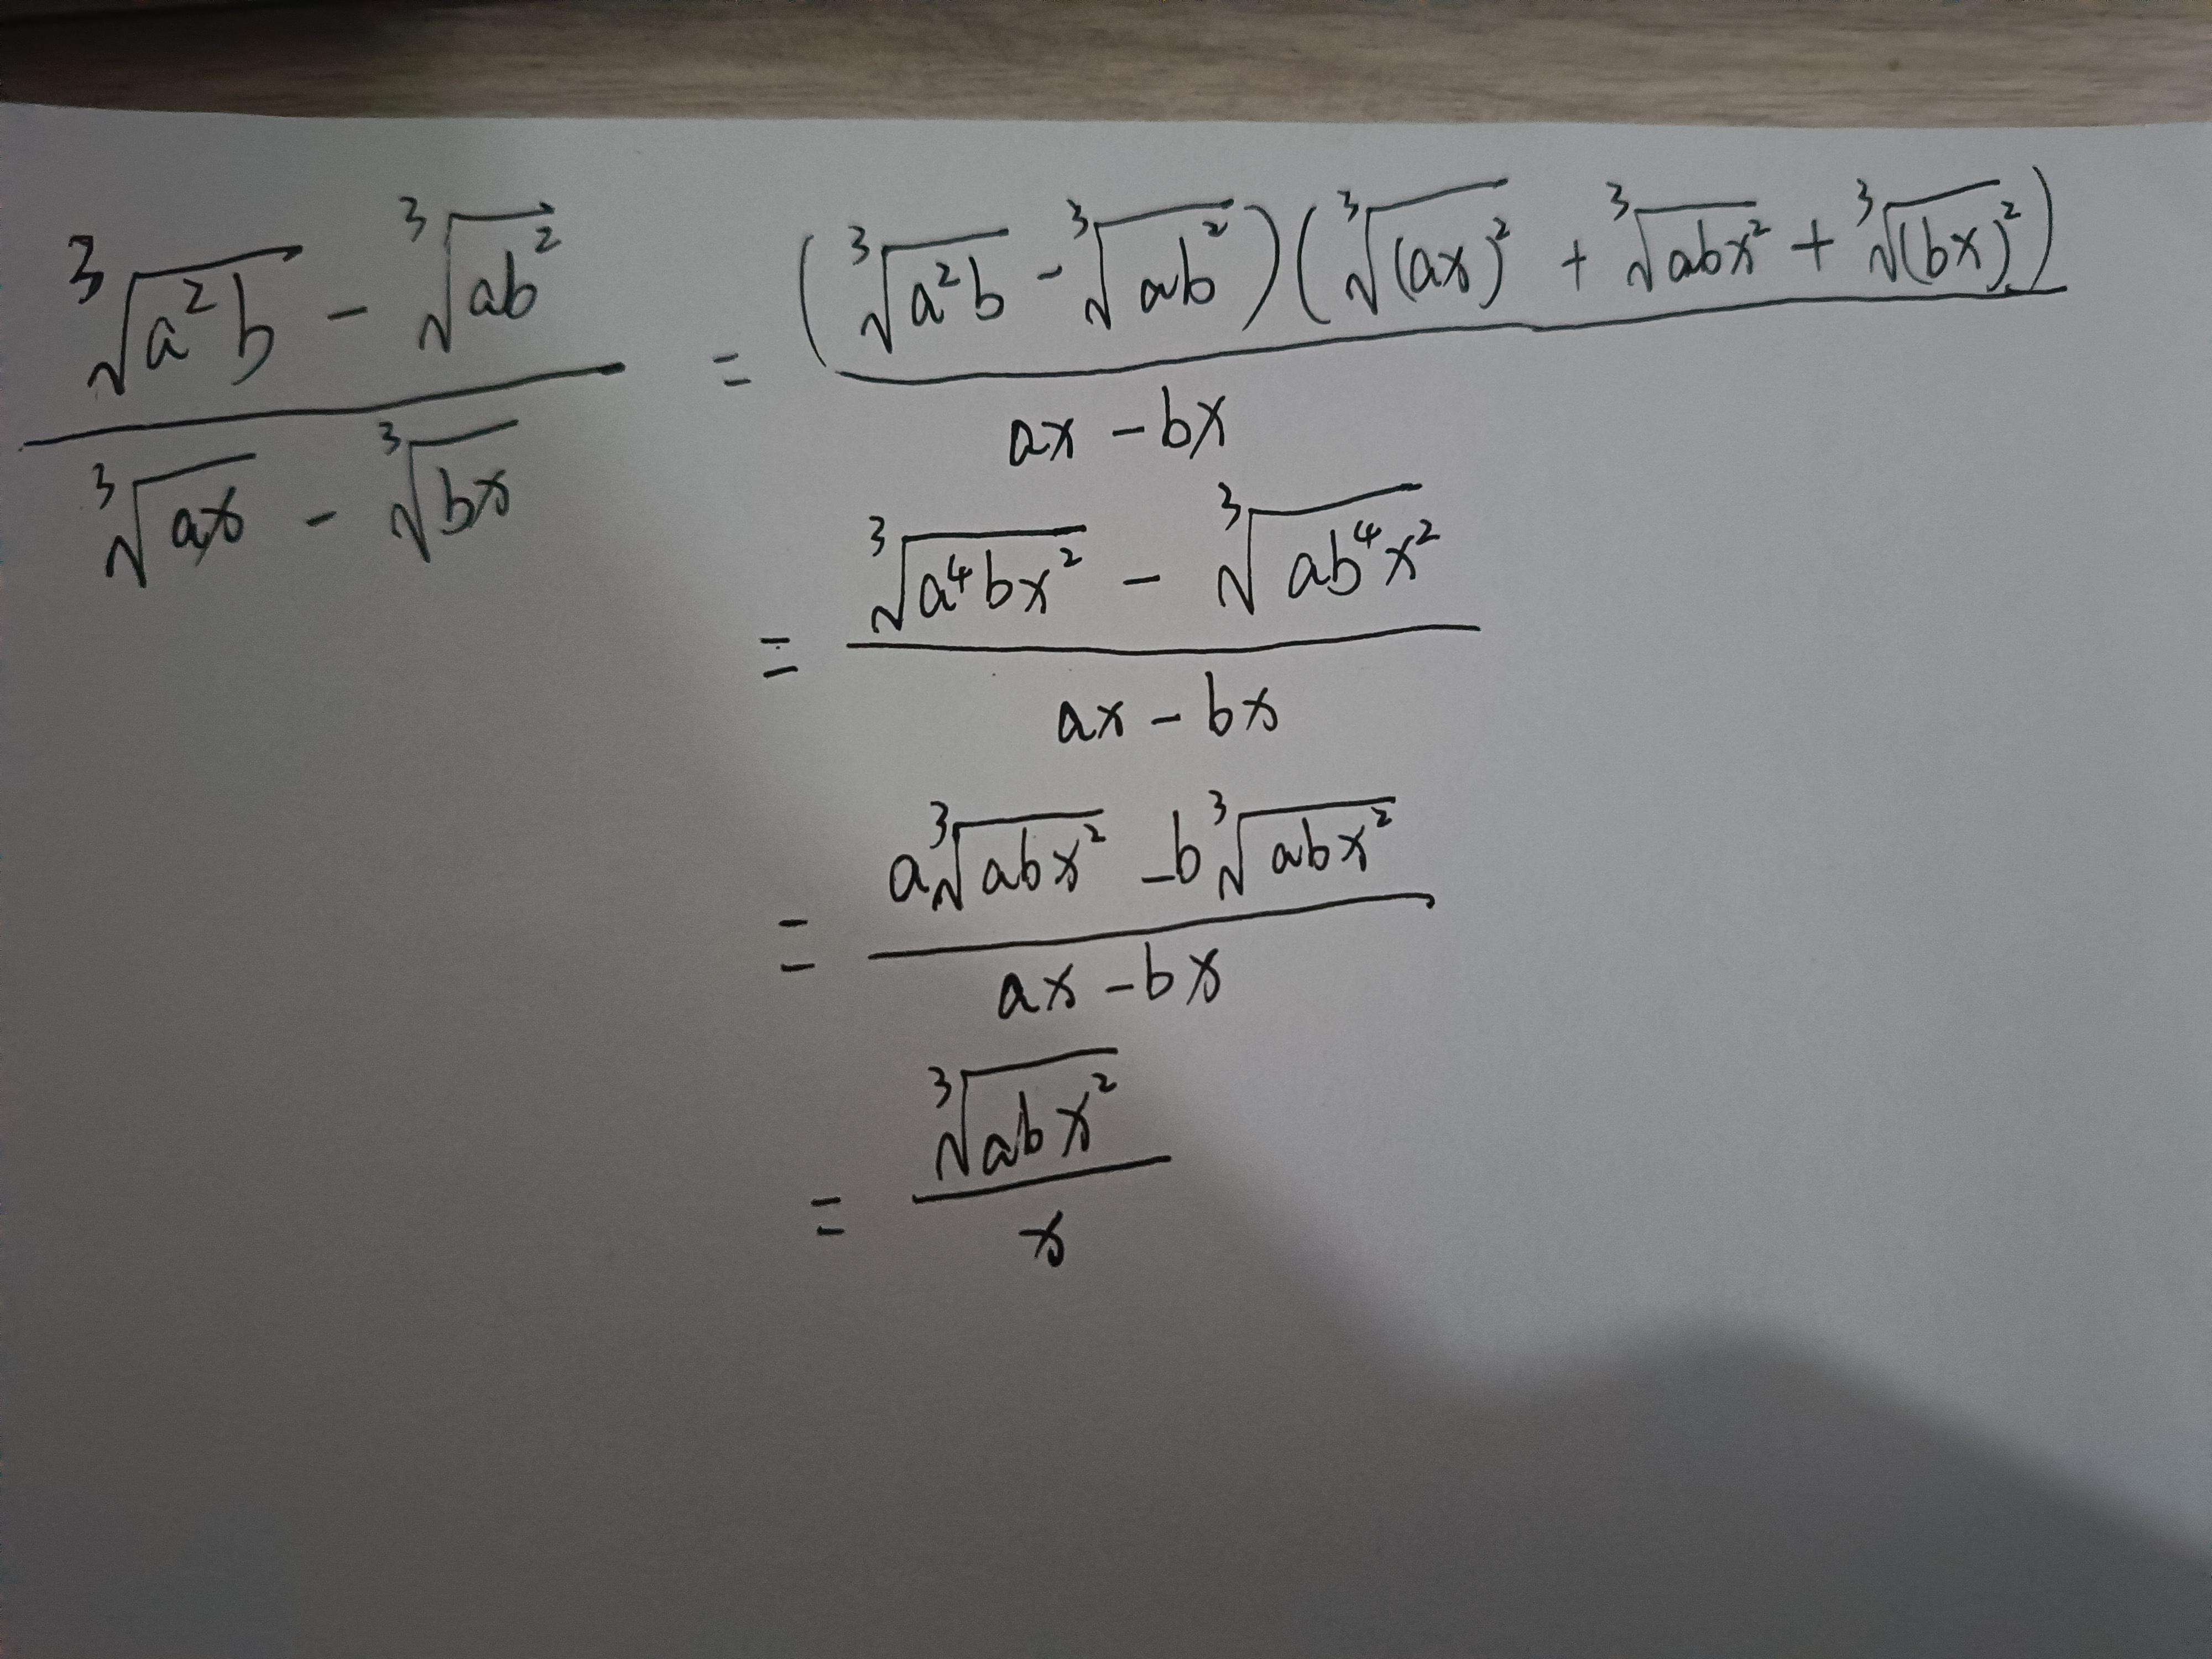 \frac{\sqrt[3]{a^2b} - \sqrt[3]{ab^2}}{\sqrt[3]{ax} - \sqrt[3]{bx}} = \frac{(\sqrt[3]{a^2b} - \sqrt[3]{ab^2})(\sqrt[3]{(ax)^2} + \sqrt[3]{abx^2} + \sqrt[3]{(bx)^2})}{ax - bx}
= \frac{\sqrt[3]{a^4bx^2} - \sqrt[3]{ab^4x^2}}{ax - bx}
= \frac{a\sqrt[3]{abx^2} - b\sqrt[3]{abx^2}}{ax - bx}
= \frac{\sqrt[3]{abx^2}}{x}